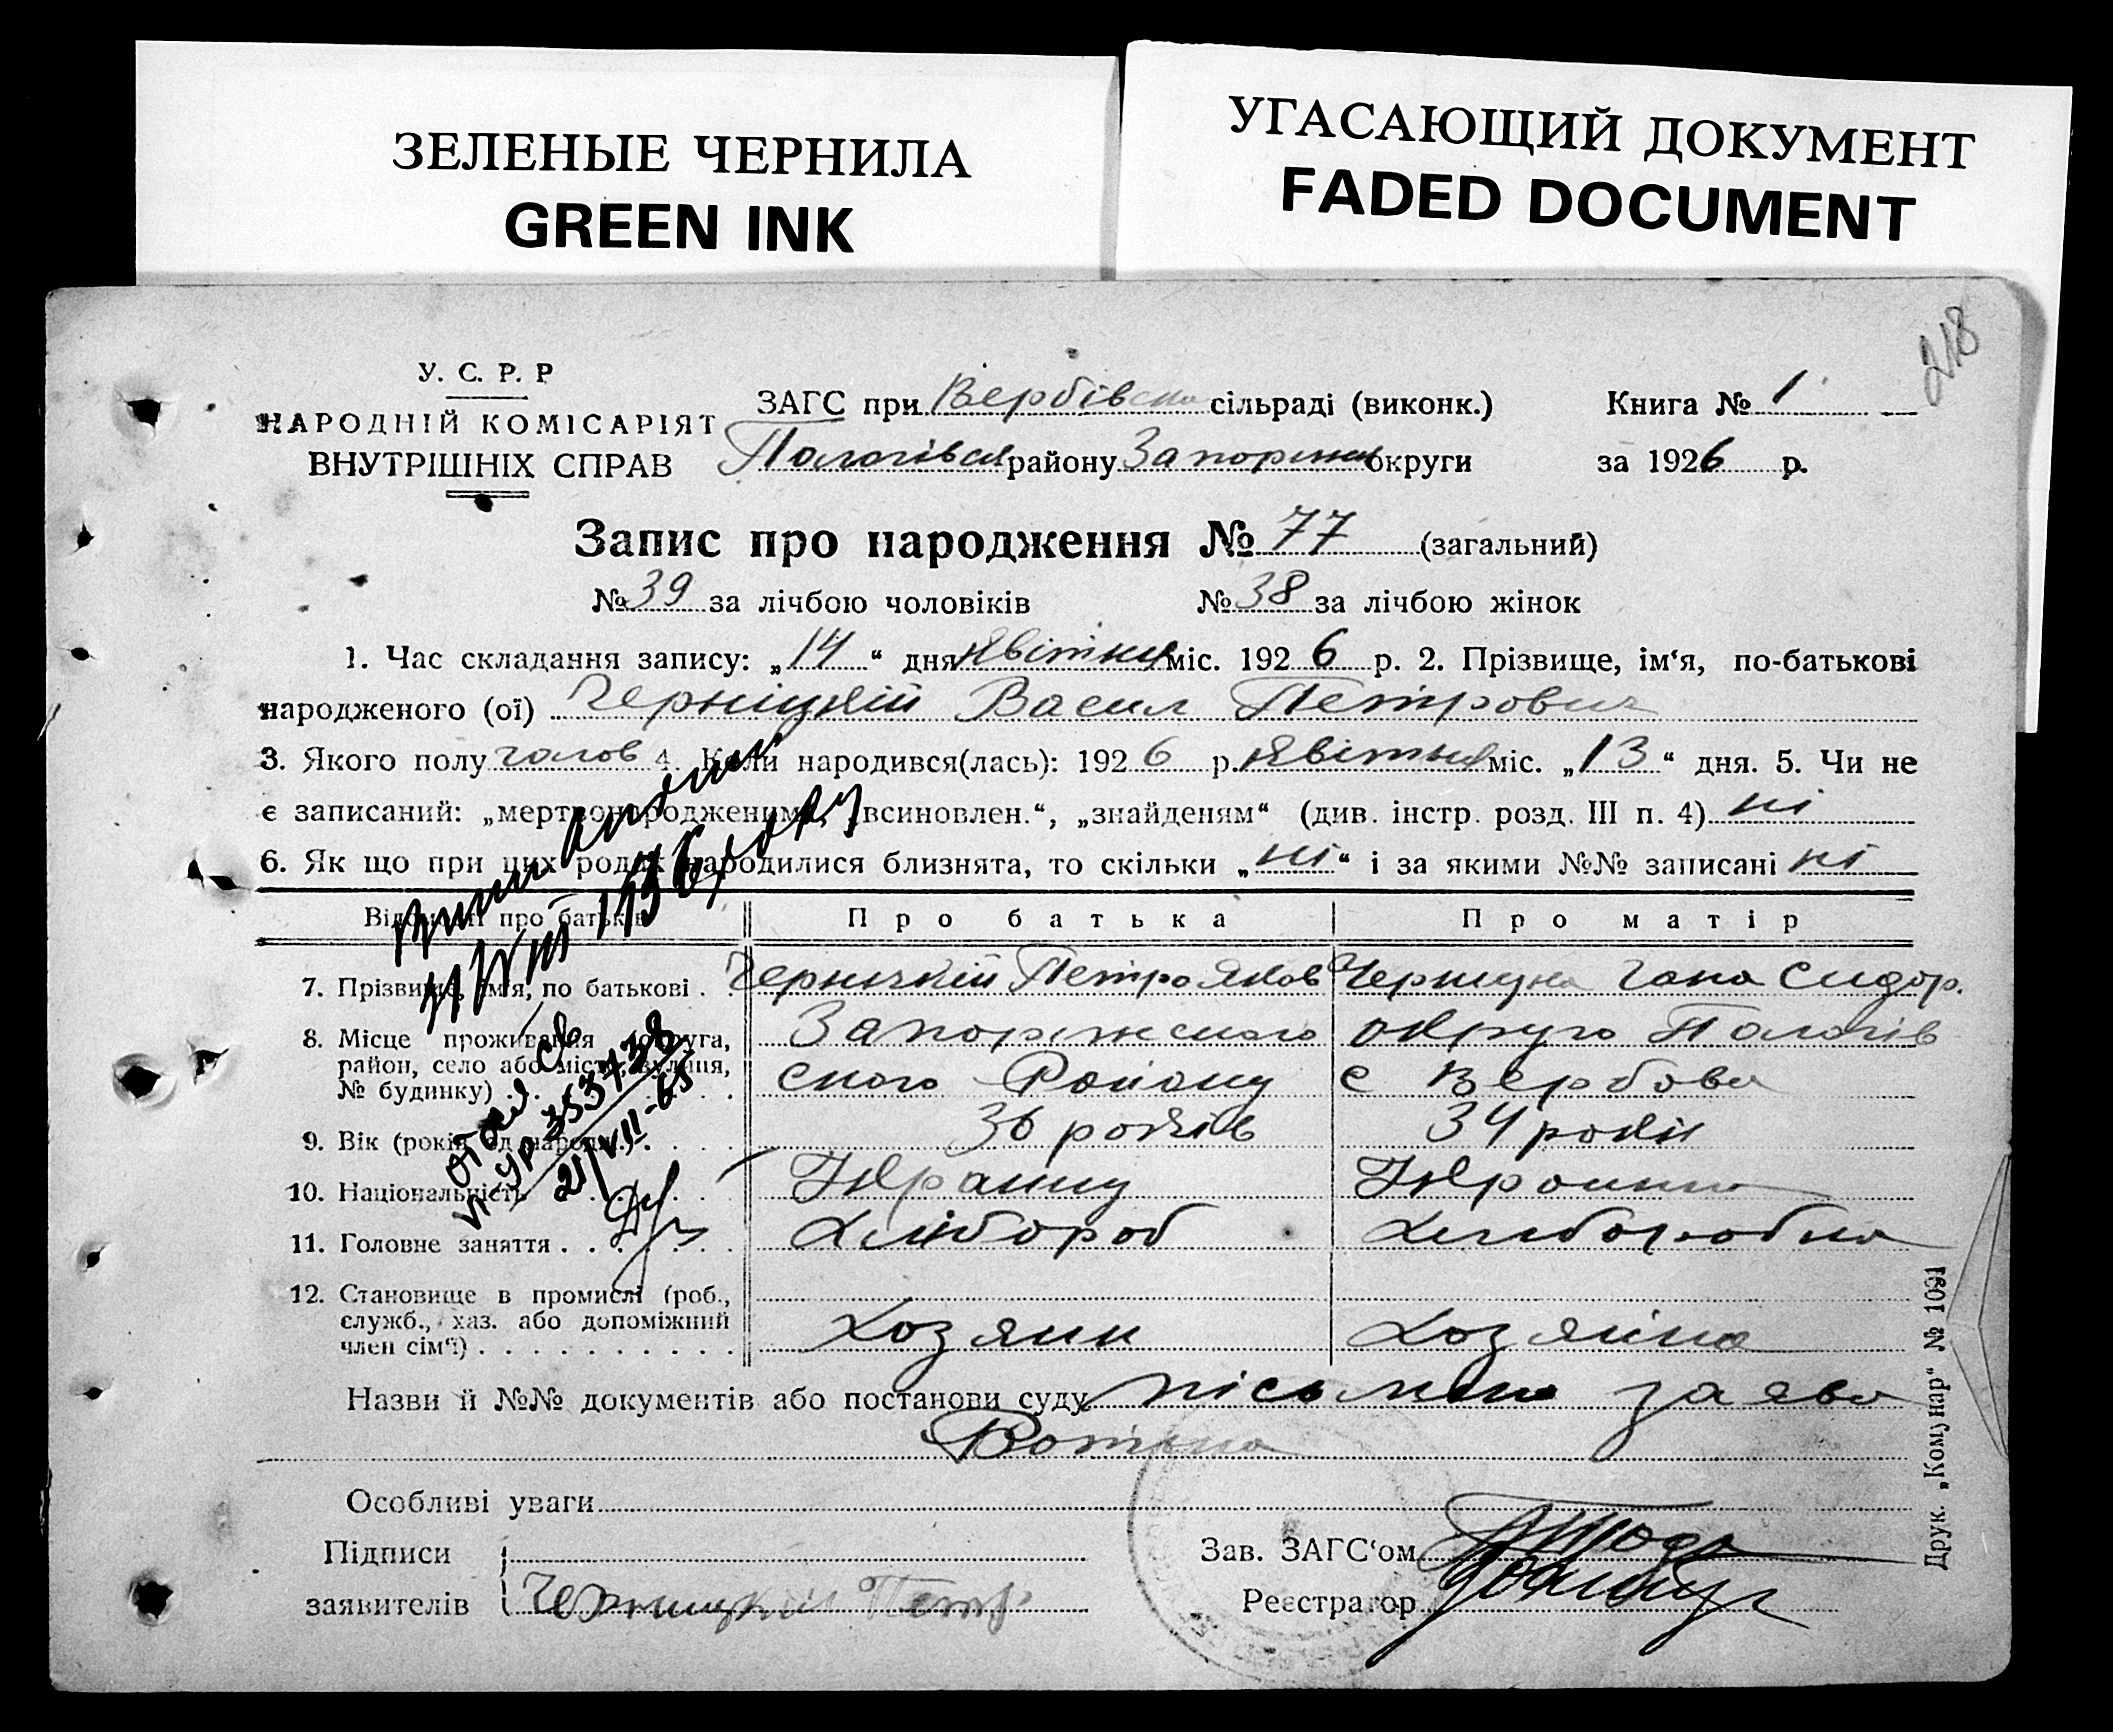 ЗЕЛЕНЫЕ ЧЕРНИЛА
GREEN INK
УГАСАЮЩИЙ ДОКУМЕНТ
FADED DOCUMENT
218
У. С. Р. Р
НАРОДНІЙ КОМІСАРІЯТ
ВНУТРІШНІХ СПРАВ
ЗАГС при Вербівско сільраді (виконк.)
Книга № 1
району округи
за 1926 р.
Запис про народження № 77 (загальний)
№ 39 за лічбою чоловіків № 38 за лічбою жінок
1. Час складання запису: „14“ дня квітня міс. 1926 р. 2. Прізвище, ім‘я, по-батькові
народженого (ої) Черніцкій Васил Петрович
3. Якого полу чолов 4. Коли народився(лась): 1926 р. квітня міс. „13“ дня. 5. Чи не
є записаний: „мертвонародженим“, „всиновлен.“, „знайденям“ (див. інстр. розд. III п. 4) ні
6. Як що при цих родах народилися близнята, то скільки „ні“ і за якими №№ записані ні
Відомості про батьків
Про батька
Про матір
7. Прізвище, ім‘я, по батькові . .
Черницкій Петро Яков
Черницка Гана Сидор.
8. Місце проживання (округа,
район, село або місто, вулиця,
№ будинку) . . .
Запоріжского округо Пологів
ского Району с Вербове
9. Вік (років від народж.) . . .
36 років
34 роки
10. Національність . . .
Україниц
Українка
11. Головне заняття . . . .
Хлібороб
Хліборобка
12. Становище в промислі (роб.,
служб., хаз. або допоміжний
член сім‘ї) . . . . . . . . . .
Хозяин
Хозяйка
Назви й №№ документів або постанови суду письмена заява
Батька
Особливі уваги
Підписи
заявителів
Черницкий Петр
Зав. ЗАГС‘ом
Реєстратор
Друк. „Комунар“ № 1091
1936 року
353728
21/VII-65